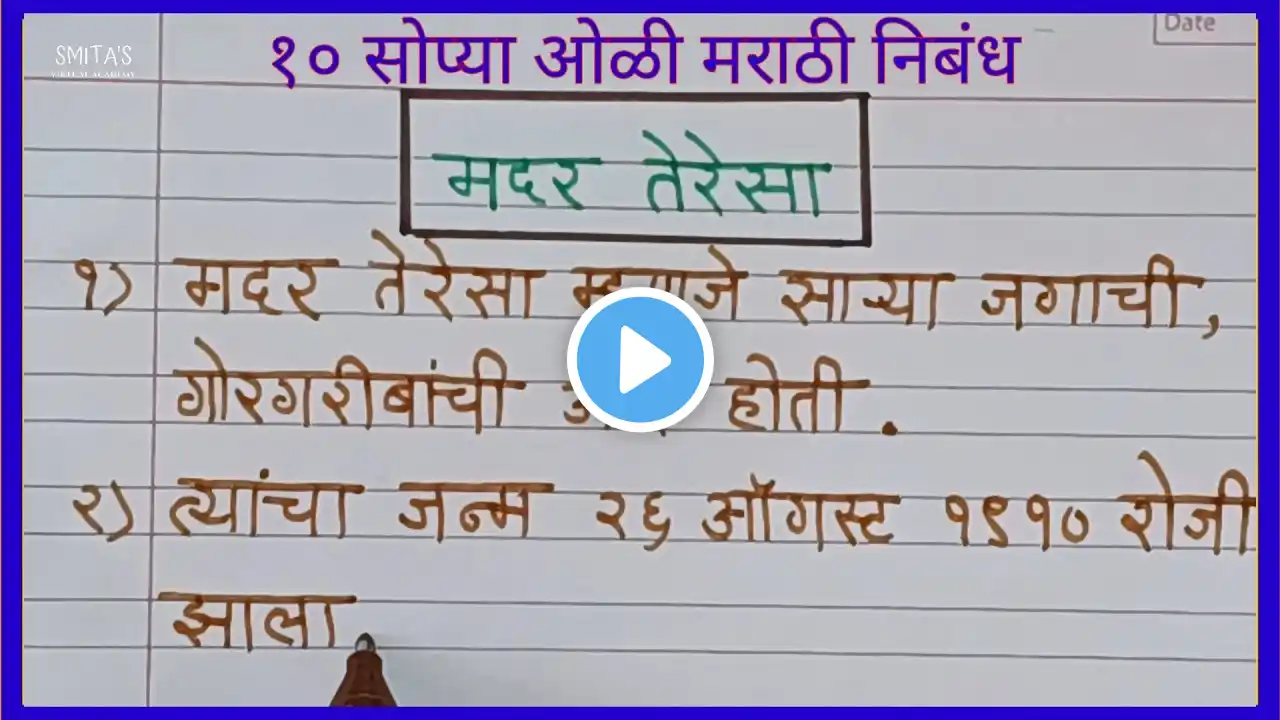 Date
SMITA'S
VIRTUAL ACADEMY
१० सोप्या ओळी मराठी निबंध
मदर तेरेसा
१) मदर तेरेसा साऱ्या जगाची,
गोरगरीबांची होती.
२) त्यांचा जन्म २६ ऑगस्ट १९१० रोजी
झाला.